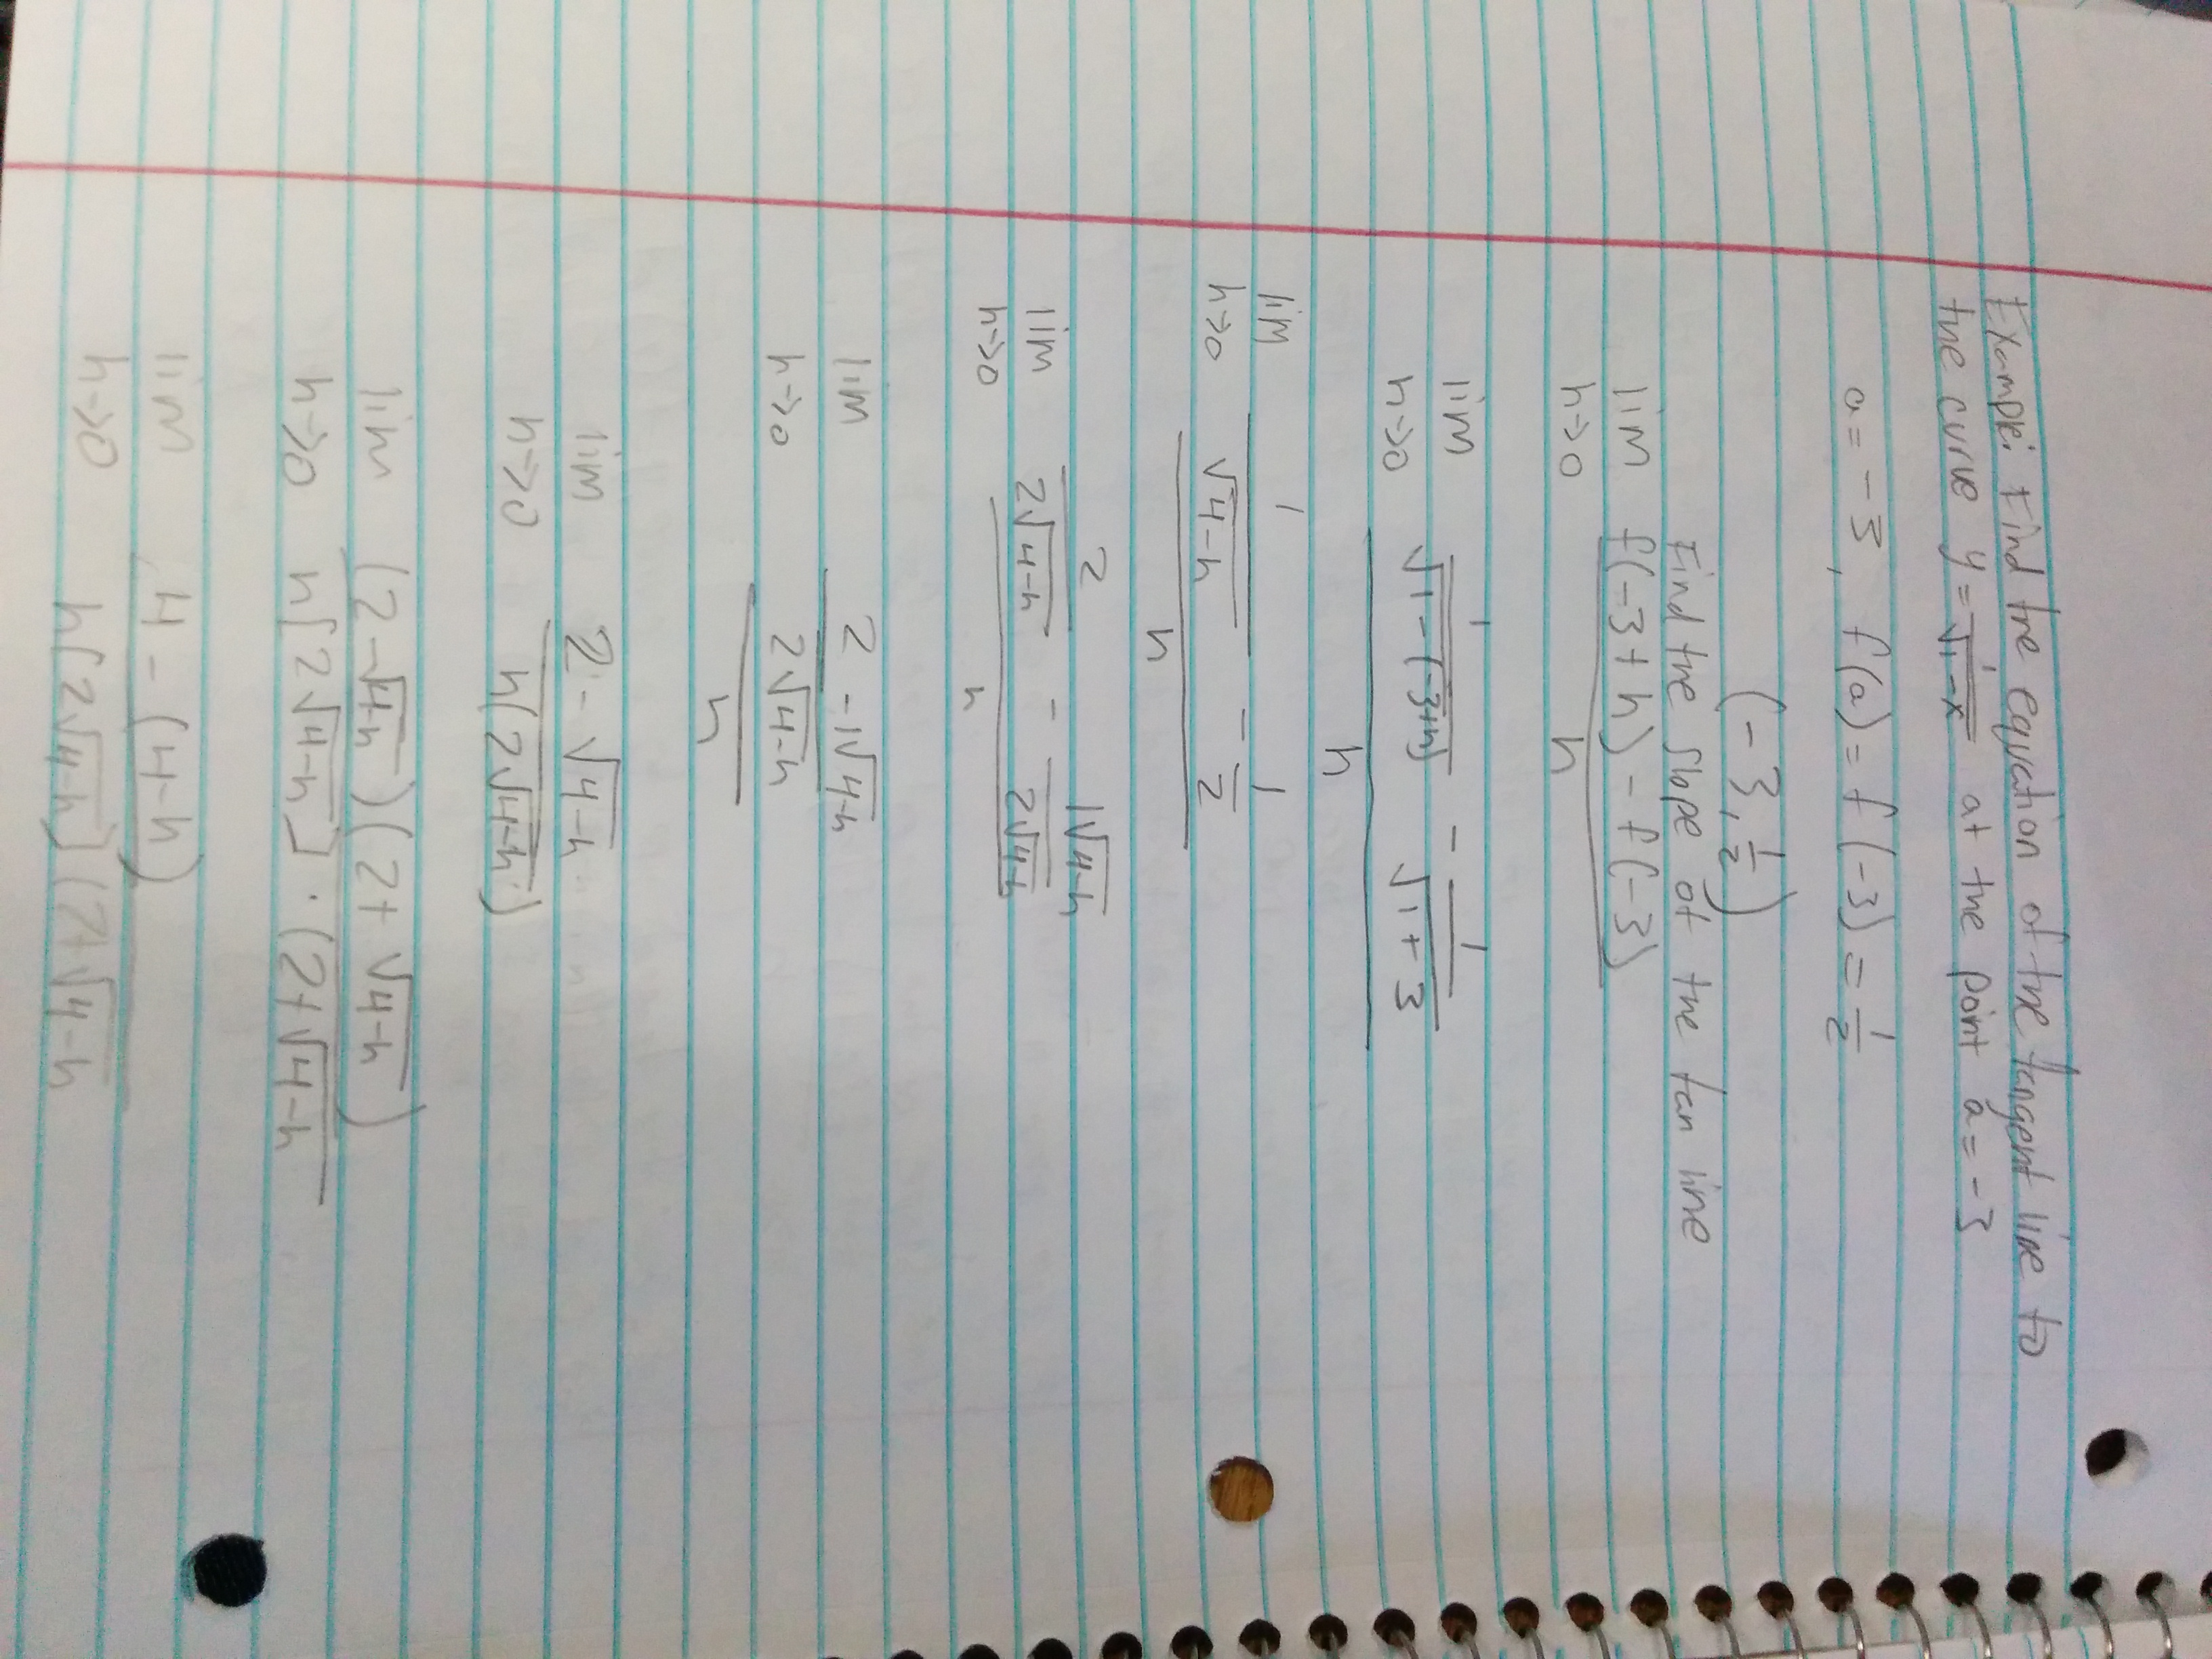 Example: Find the equation of the tangent line to
the curve y = 1/√(1-x) at the point a = -3
a = -3, f(a) = f(-3) = 1/2
(-3, 1/2)
Find the slope of the tan line
lim h->0 (f(-3+h) - f(-3))/h
lim h->0 (1/√(1-(-3+h)) - 1/√(1+3))/h
lim h->0 (1/√(4-h) - 1/2)/h
lim h->0 (2/(2√(4-h)) - 1√(4-h)/(2√(4-h)))/h
lim h->0 ((2 - 1√(4-h))/(2√(4-h)))/h
lim h->0 (2 - √(4-h))/(h(2√(4-h)))
lim h->0 (2-√(4-h))(2+√(4-h))/(h[2√(4-h)]·(2+√(4-h)
lim h->0 (4-(4-h))/(h[2√(4-h)](2+√(4-h)